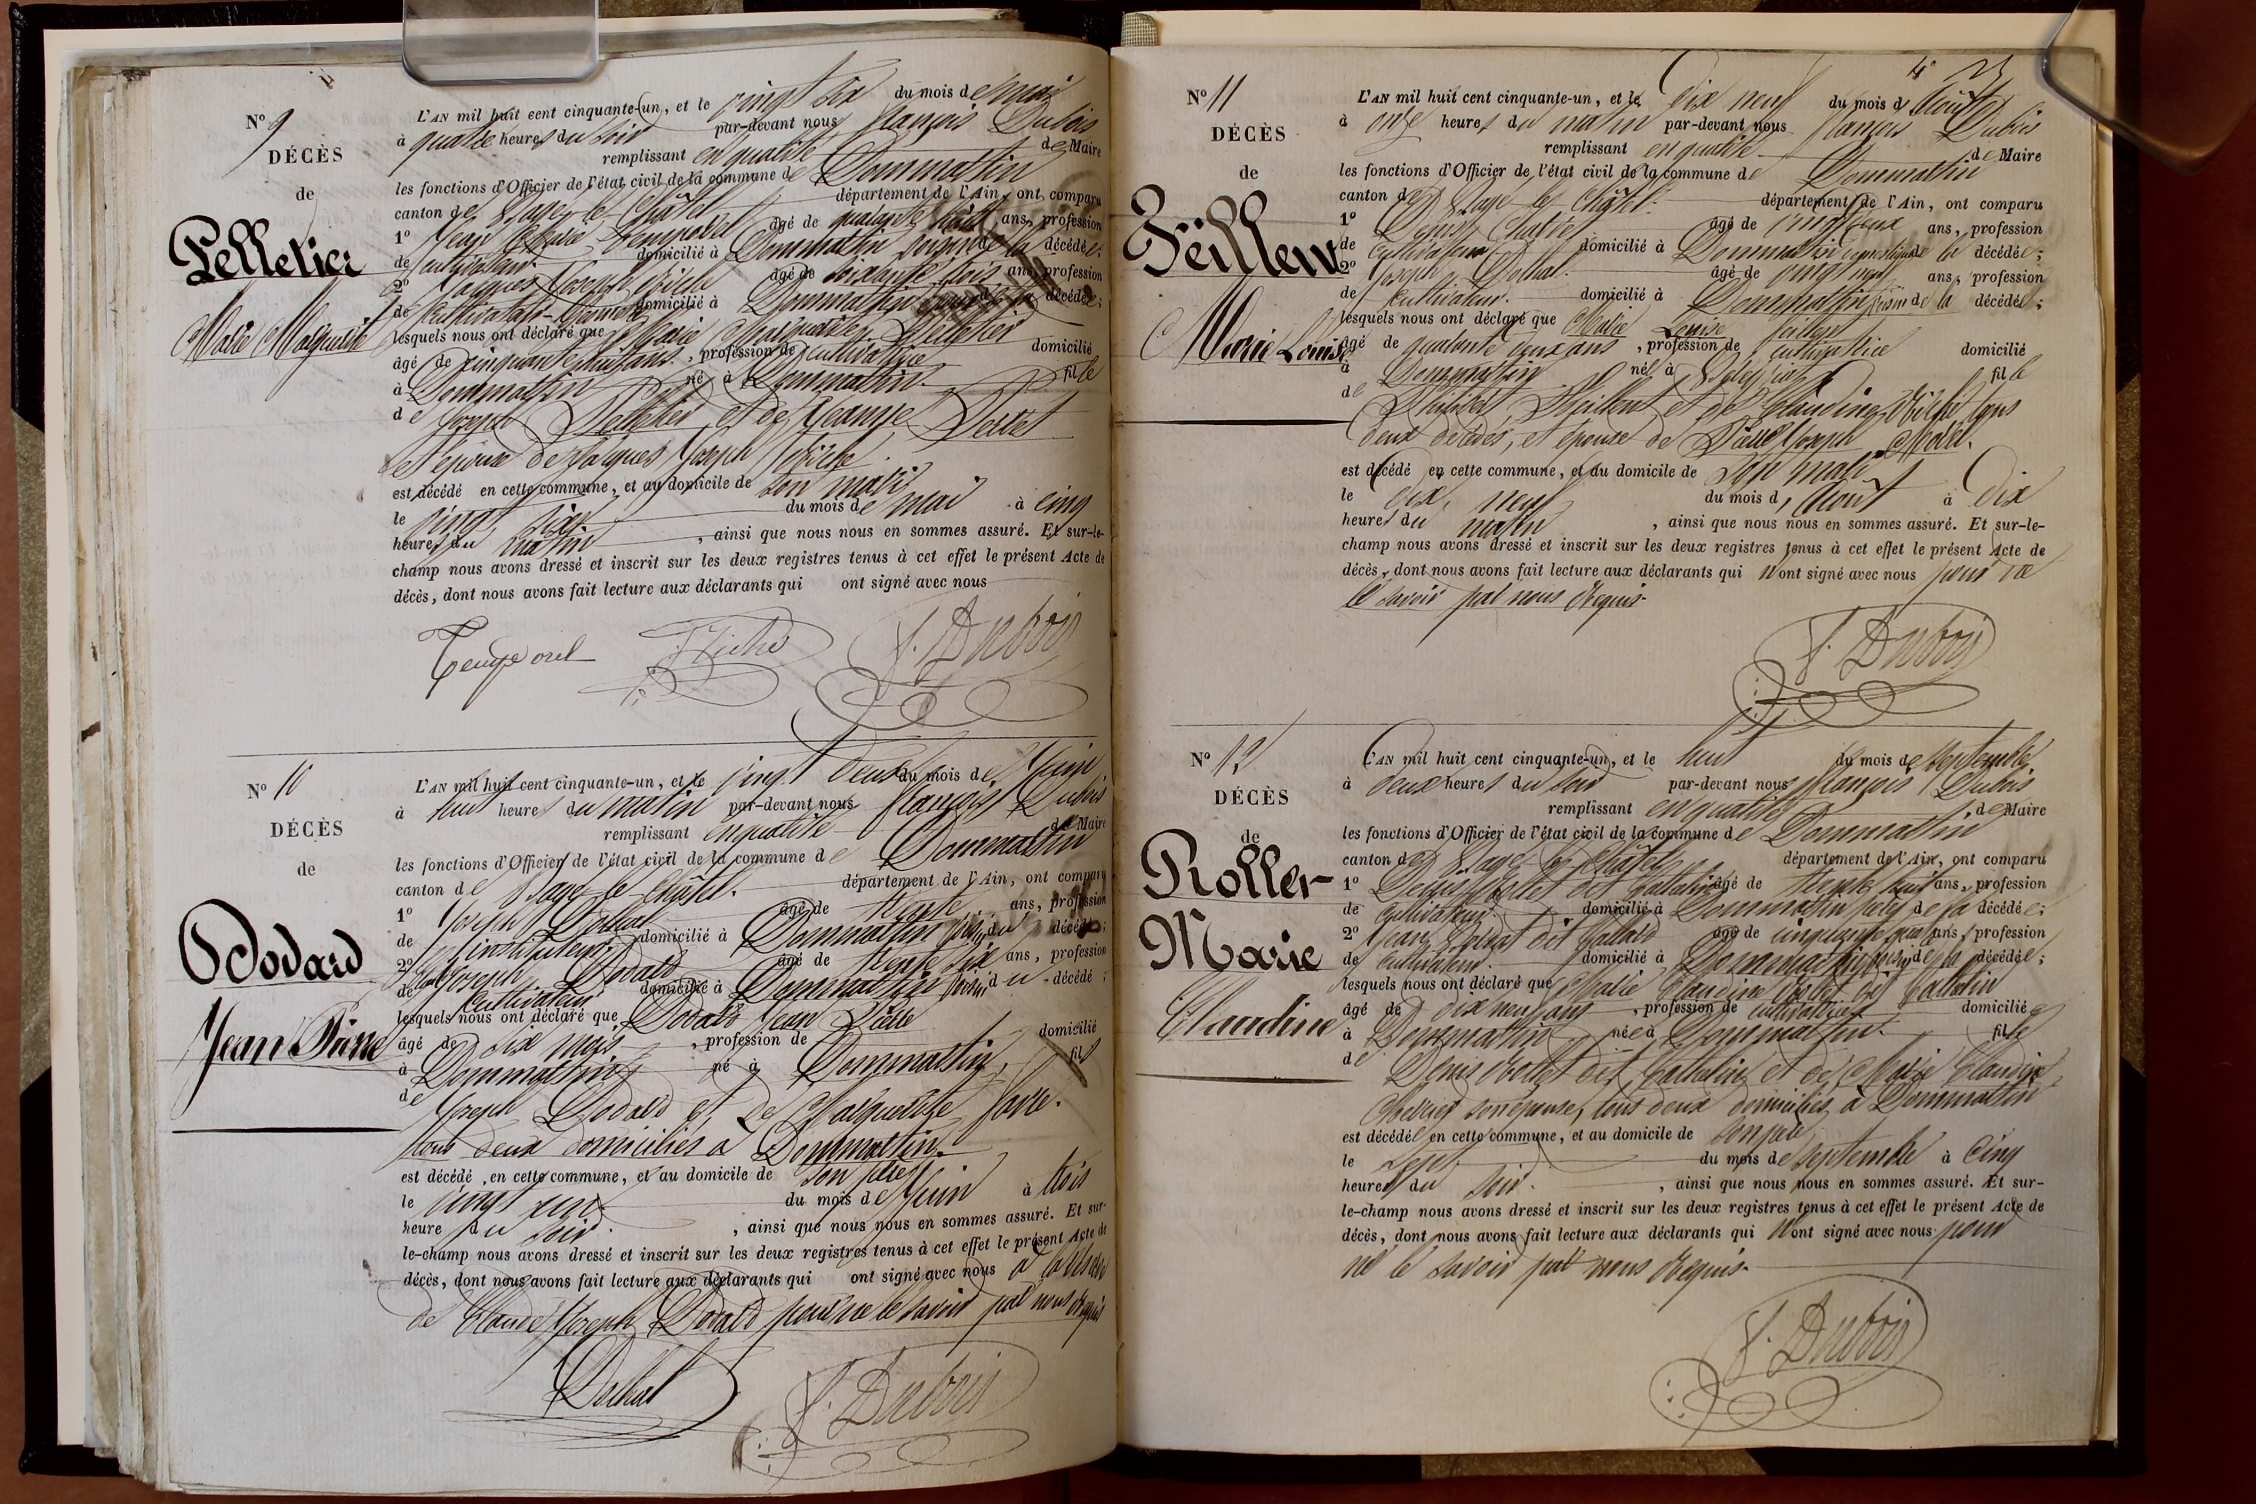 N° 9
DÉCÈS
de
Pelletier
Marie Marguerite
L'AN mil huit cent cinquante-un, et le vingt six du mois de mai
à quatre heures du soir par-devant nous François Dubois
remplissant en qualité de Maire
les fonctions d'Officier de l'état civil de la commune de Dommartin
canton de Bagé le Châtel département de l'Ain, ont comparu
1° Jean Marie Temporel âgé de quarante huit ans, profession
de cultivateur domicilié à Dommartin voisin de la décédée;
2° Jacques Joseph âgé de soixante trois ans, profession
de cultivateur domicilié à Dommartin de la décédée;
lesquels nous ont déclaré que Marie Marguerite Pelletier
âgé de cinquante ans, profession de cultivatrice domicilié
à Dommartin né à Dommartin fille
de Joseph Pelletier et de Jeanne
et épouse de Jacques Joseph
est décédé en cette commune, et au domicile de son mari
le vingt six du mois de mai à cinq
heures du matin, ainsi que nous nous en sommes assuré. Et sur-le-
champ nous avons dressé et inscrit sur les deux registres tenus à cet effet le présent Acte de
décès, dont nous avons fait lecture aux déclarants qui ont signé avec nous
Temporel F. Dubois
N° 10
DÉCÈS
de
Dodard
Jean Pierre
L'AN mil huit cent cinquante-un, et le vingt deux du mois de Juin
à huit heures du matin par-devant nous François Dubois
remplissant en qualité de Maire
les fonctions d'Officier de l'état civil de la commune de Dommartin
canton de Bagé le Châtel. département de l'Ain, ont comparu
1° Joseph Dochat âgé de trente ans, profession
de instituteur domicilié à Dommartin voisin du décédé;
2° Claude Joseph Dodard âgé de trente six ans, profession
de cultivateur domicilié à Dommartin voisin du décédé;
lesquels nous ont déclaré que Dodard Jean Pierre
âgé de six mois, profession de domicilié
à Dommartin né à Dommartin, fils
de Joseph Dodard et de Marguerite Favre.
tous deux domiciliés à Dommartin.
est décédé en cette commune, et au domicile de son père
le vingt un du mois de Juin à trois
heure du soir., ainsi que nous nous en sommes assuré. Et sur-
le-champ nous avons dressé et inscrit sur les deux registres tenus à cet effet le présent Acte de
décès, dont nous avons fait lecture aux déclarants qui ont signé avec nous à la réserve
de Claude Joseph Dodard pour ne le savoir par nous requis
Dochat F. Dubois
N° 11
DÉCÈS
de
Féilleut
Marie Louise
L'AN mil huit cent cinquante-un, et le Dix neuf du mois d'Août
à onze heures du matin par-devant nous François Dubois
remplissant en qualité de Maire
les fonctions d'Officier de l'état civil de la commune de Dommartin
canton de Bagé le Châtel. département de l'Ain, ont comparu
1° Denis âgé de vingt deux ans, profession
de cultivateur domicilié à Dommartin de la décédée;
2° Joseph Dochat âgé de vingt neuf ans, profession
de cultivateur. domicilié à Dommartin voisin de la décédée;
lesquels nous ont déclaré que Marie Louise
âgé de quarante deux ans, profession de cultivatrice domicilié
à Dommartin née à fille
de Philibert et de Claudine tous
deux décédés, et épouse de Pierre Joseph
est décédé en cette commune, et au domicile de son mari
le dix neuf du mois d'Août à Dix
heures du matin, ainsi que nous nous en sommes assuré. Et sur-le-
champ nous avons dressé et inscrit sur les deux registres tenus à cet effet le présent Acte de
décès, dont nous avons fait lecture aux déclarants qui n'ont signé avec nous pour ne
le savoir par nous requis.
F. Dubois
N° 12
DÉCÈS
de
Rollet
Marie
Claudine
L'AN mil huit cent cinquante-un, et le huit du mois de Septembre
à deux heures du soir par-devant nous François Dubois
remplissant en qualité de Maire
les fonctions d'Officier de l'état civil de la commune de Dommartin
canton de Bagé le Châtel département de l'Ain, ont comparu
1° Denis Rollet dit Cathelin âgé de trente huit ans, profession
de cultivateur. domicilié à Dommartin père de la décédée;
2° Jean dit âgé de cinquante ans, profession
de cultivateur. domicilié à Dommartin voisin de la décédée;
lesquels nous ont déclaré que Marie Claudine Rollet dit Cathelin
âgé de dix neuf ans, profession de cultivatrice domiciliée
à Dommartin née à Dommartin. fille
de Denis Rollet dit Cathelin et de Marie Claudine
Chevrier son épouse, tous deux domiciliés à Dommartin
est décédée en cette commune, et au domicile de son père
le sept du mois de septembre à Cinq
heures du soir., ainsi que nous nous en sommes assuré. Et sur-
le-champ nous avons dressé et inscrit sur les deux registres tenus à cet effet le présent Acte de
décès, dont nous avons fait lecture aux déclarants qui n'ont signé avec nous pour
ne le savoir par nous requis.
F. Dubois